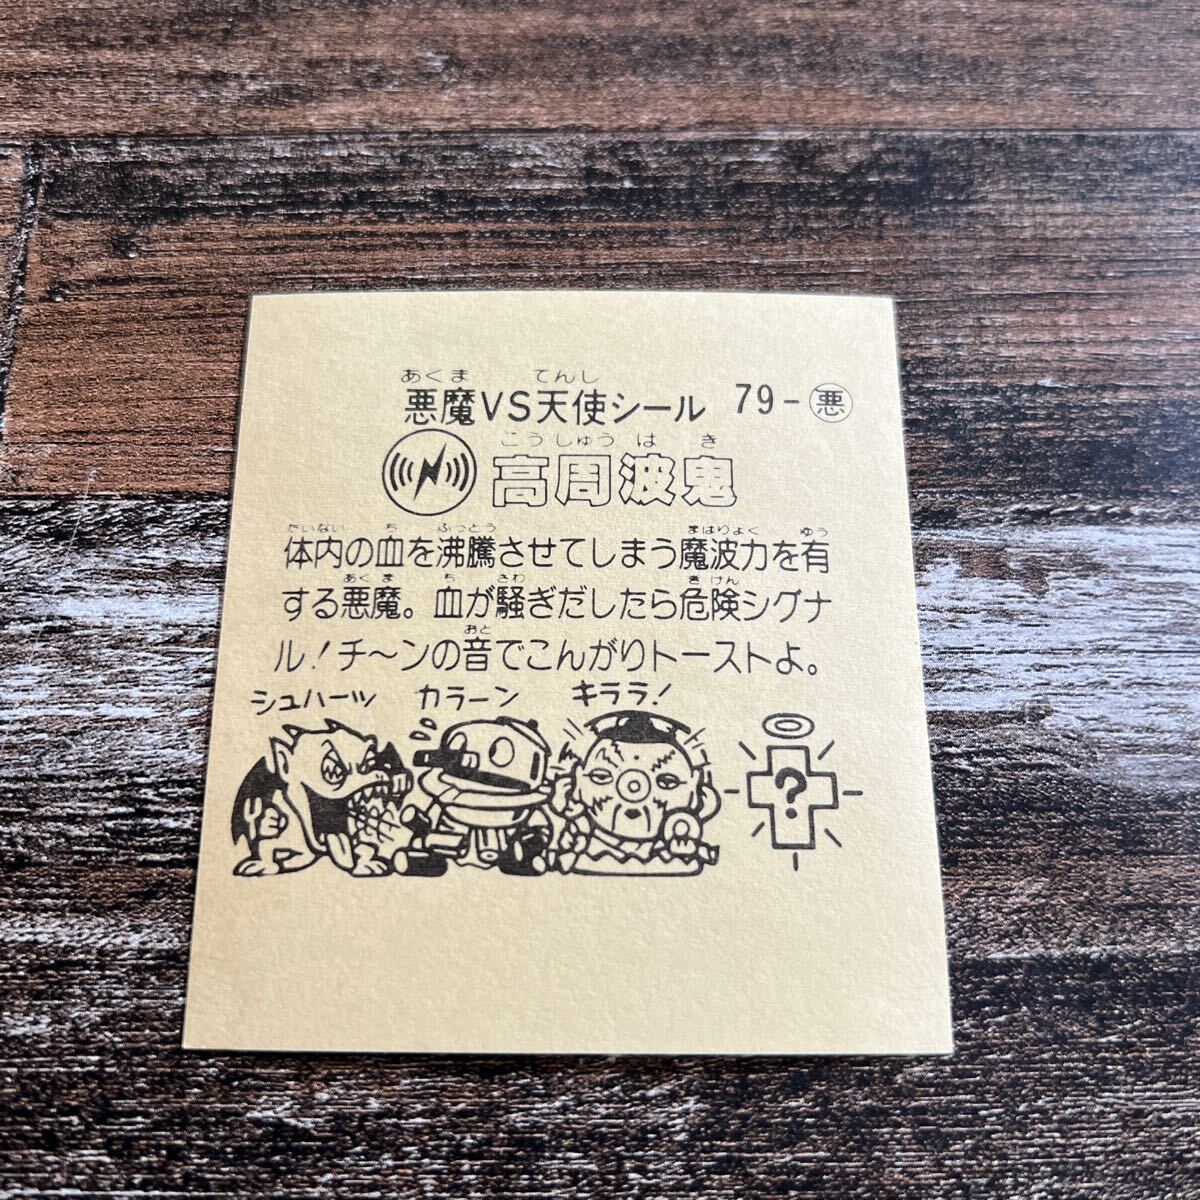 あくま てんし
悪魔VS天使シール 79-悪
こうしゅう は き
高周波鬼
たいない ち ふっとう まはりょく ゆう
体内の血を沸騰させてしまう魔波力を有
あくま ち さわ きけん
する悪魔。血が騒ぎだしたら危険シグナ
おと
ル!チ〜ンの音でこんがりトーストよ。
シュハーッ カラーン キララ!
?